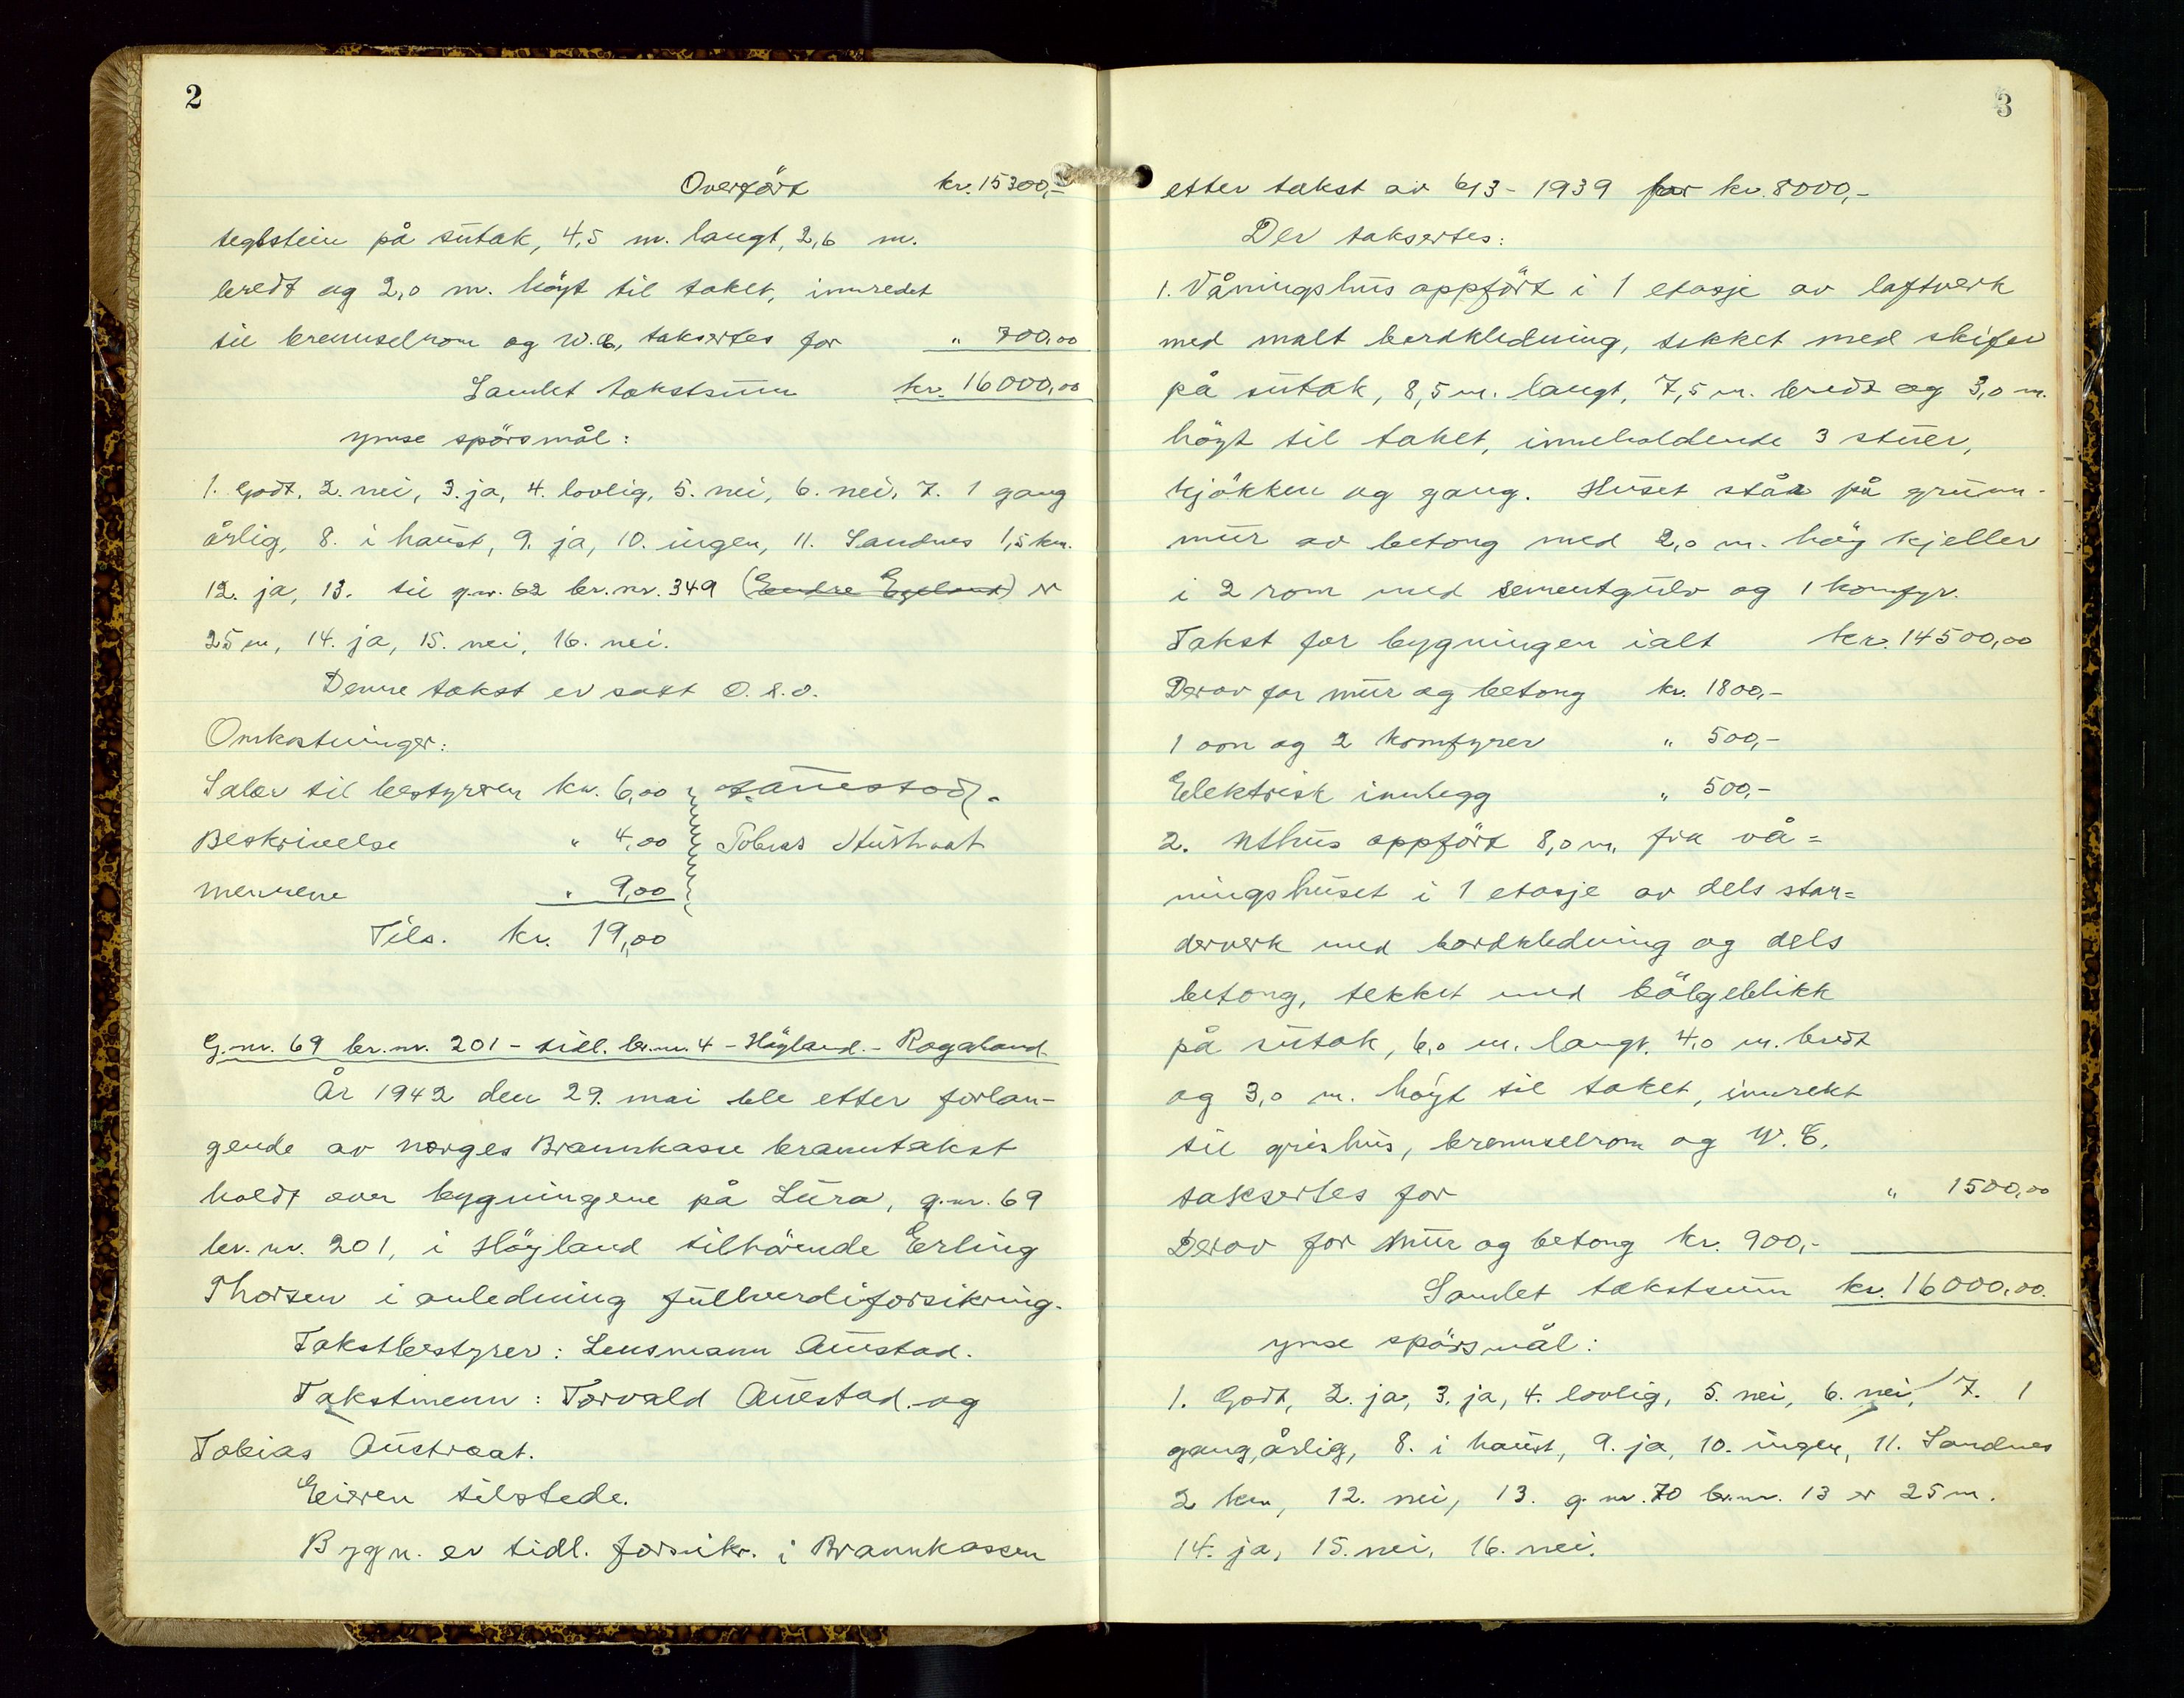 2
Overfört kr. 15300,-
teglstein på sutak, 4,5 m. langt, 2,6 m.
bredt og 2,0 m. höyt til taket, innredet
til brennselrom og W.C., taksertes for " 700,00
Samlet takstsum kr. 16000,00
ymse spörsmål:
1. Godt, 2. nei, 3. ja, 4. lovlig, 5. nei, 6. nei, 7. 1 gang
årlig, 8. i haust, 9. ja, 10. ingen, 11. Sandnes 1,5 km.
12. ja, 13. til g.nr. 62 br.nr. 349 (Endre Egeland) er
25 m, 14. ja, 15. nei, 16. nei.
Denne takst er satt O.s.v.
Omkostninger:
Salær til bestyreren kr. 6,00
Beskrivelse " 4,00 Tobias Austraat
mennene " 9,00
Tils. kr. 19,00
G.nr. 69 br.nr. 201 - tidl. br.nr. 4 - Höyland. - Rogaland
År 1942 den 29. mai ble etter forlan-
gende av Norges Brannkasse branntakst
holdt over bygningene på Lura, g.nr. 69
br.nr. 201, i Höyland tilhörende Erling
Thorsen i anledning fullverdiforsikring.
Takstbestyrer: Lensmann Auestad.
Takstmenn: Torvald Auestad og
Tobias Austraat.
Eieren tilstede.
Bygn. er tidl. forsikr. i Brannkassen
3
etter takst av 6/3 - 1939 for kr. 8000,-
Der taksertes:
1. Våningshus oppfört i 1 etasje av laftverk
med malt bordkledning, tekket med skifer
på sutak, 8,5 m. langt, 7,5 m. bredt og 3,0 m.
höyt til taket, inneholdende 3 stuer,
kjökken og gang. Huset står på grunn-
mur av betong med 2,0 m. höy kjeller
i 2 rom med sementgulv og 1 komfyr.
Takst for bygningen ialt kr. 14500,00
Derav for mur og betong kr. 1800,-
1 ovn og 2 komfyrer " 500,-
Elektrisk innlegg " 500,-
2. Uthus oppfört 8,0 m. fra vå=
ningshuset i 1 etasje av dels stan=
derverk med bordkledning og dels
betong, tekket med bölgeblikk
på sutak, 6,0 m. langt, 4,0 m. bredt
og 3,0 m. höyt til taket, innrekt
til grishus, brennselrom og W.C.
taksertes for " 1500,00
Derav for mur og betong kr. 900,-
Samlet takstsum kr. 16000,00.
ymse spörsmål:
1. Godt, 2. ja, 3. ja, 4. lovlig, 5. nei, 6. nei, 7. 1
gang, årlig, 8. i haust, 9. ja, 10. ingen, 11. Sandnes
2 km, 12. nei, 13. g.nr. 70 br.nr. 13 er 25 m.
14. ja, 15. nei, 16. nei.